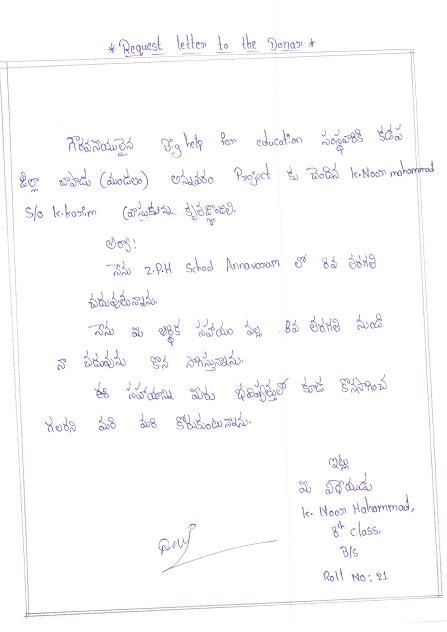 * Request letter to the Donar *
గౌరవనీయులైన Big help for education సంస్థవారికి కడప
జిల్లా చాపాడు (మండలం) అన్నవరం Project కు చెందిన K.Noor mohammad
S/o K.karim వ్రాసుకున్న కృతజ్ఞాంజలి.
అయ్యా!
నేను Z.P.H School Annavaram లో 8వ తరగతి
చదువుతున్నాను.
నేను మీ ఆర్థిక సహాయం వల్ల 8వ తరగతి నుండి
నా చదువును కొన సాగిస్తున్నాను.
ఈ సహాయాన్ని మీరు భవిష్యత్తులో కూడ కొనసాగించ
గలరని మరి మరి కోరుకుంటున్నాను.
ఇట్లు
మీ విధేయుడు
K. Noor Mohammad,
8th class,
B/S
Roll No: 21